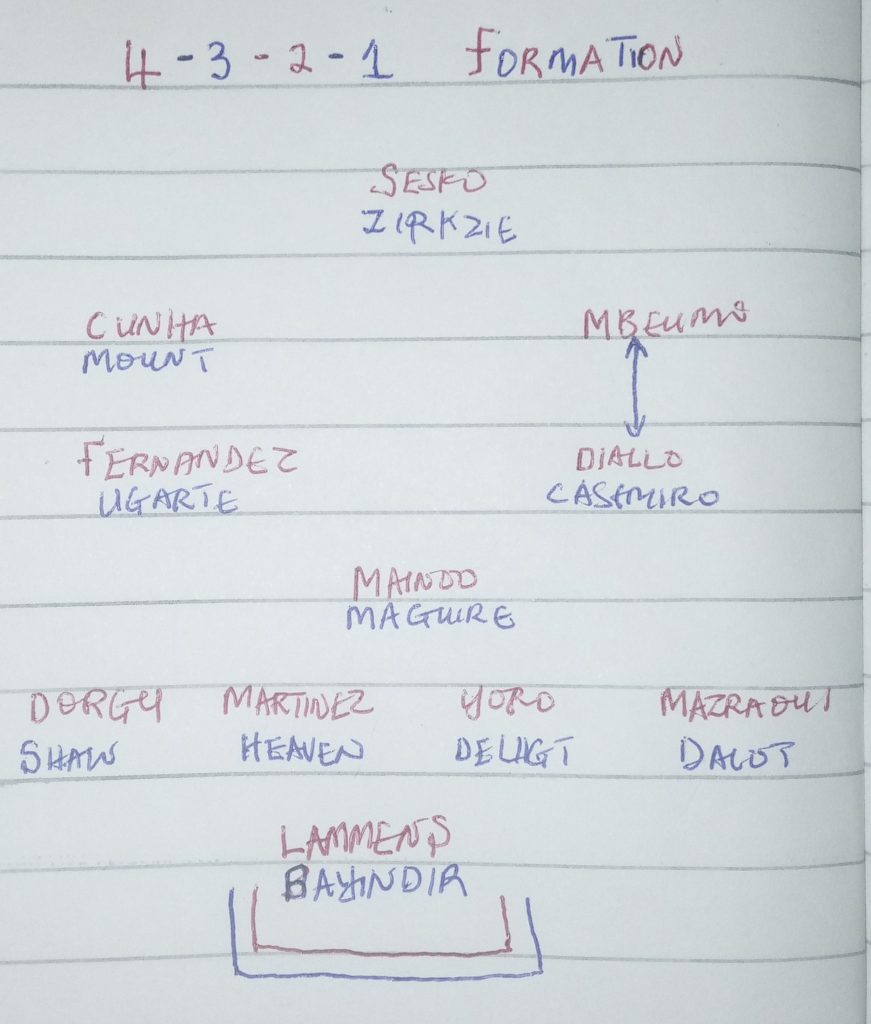 4-3-2-1 FORMATION
SESKO
ZIRKZIE
CUNHA MBEUMO
MOUNT
FERNANDEZ DIALLO
UGARTE CASEMIRO
MAINOO
MAGUIRE
DORGU MARTINEZ YORO MAZRAOUI
SHAW HEAVEN DELIGT DALOT
LAMMENS
BAYINDIR